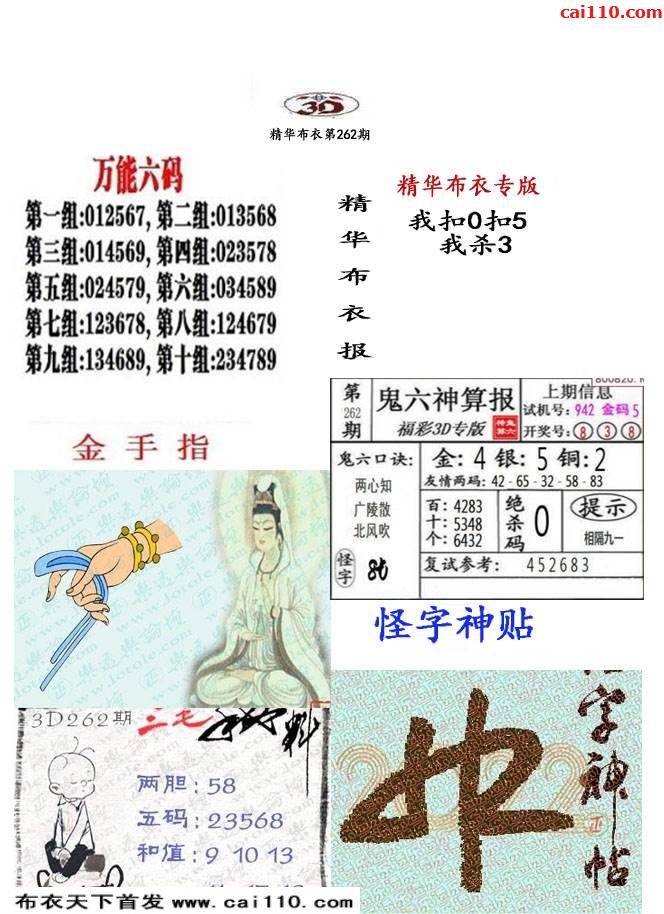 cai110.com
3D
精华布衣第262期
万能六码
第一组:012567, 第二组:013568
第三组:014569, 第四组:023578
第五组:024579, 第六组:034589
第七组:123678, 第八组:124679
第九组:134689, 第十组:234789
精华布衣报
精华布衣专版
我扣0扣5
我杀3
金手指
第262期
鬼六神算报
福彩3D专版
上期信息
试机号: 942 金码 5
开奖号: 8 3 8
鬼六口诀:
两心知
广陵散
北风吹
怪字
金: 4 银: 5 铜: 2
友情两码: 42-65-32-58-83
百: 4283
十: 5348
个: 6432
绝杀码
0
提示
相隔九一
复试参考: 452683
怪字神贴
3D262期
两胆: 58
五码: 23568
和值: 9 10 13
字神帖
布衣天下首发 www.cai110.com